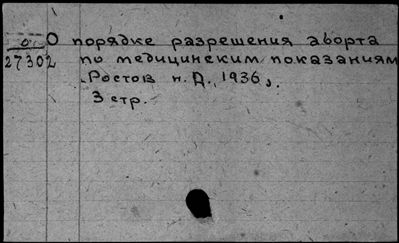 О порядке разрешения аборта
27302 по медицинским показаниям
Ростов н. Д., 1936,
3 стр.